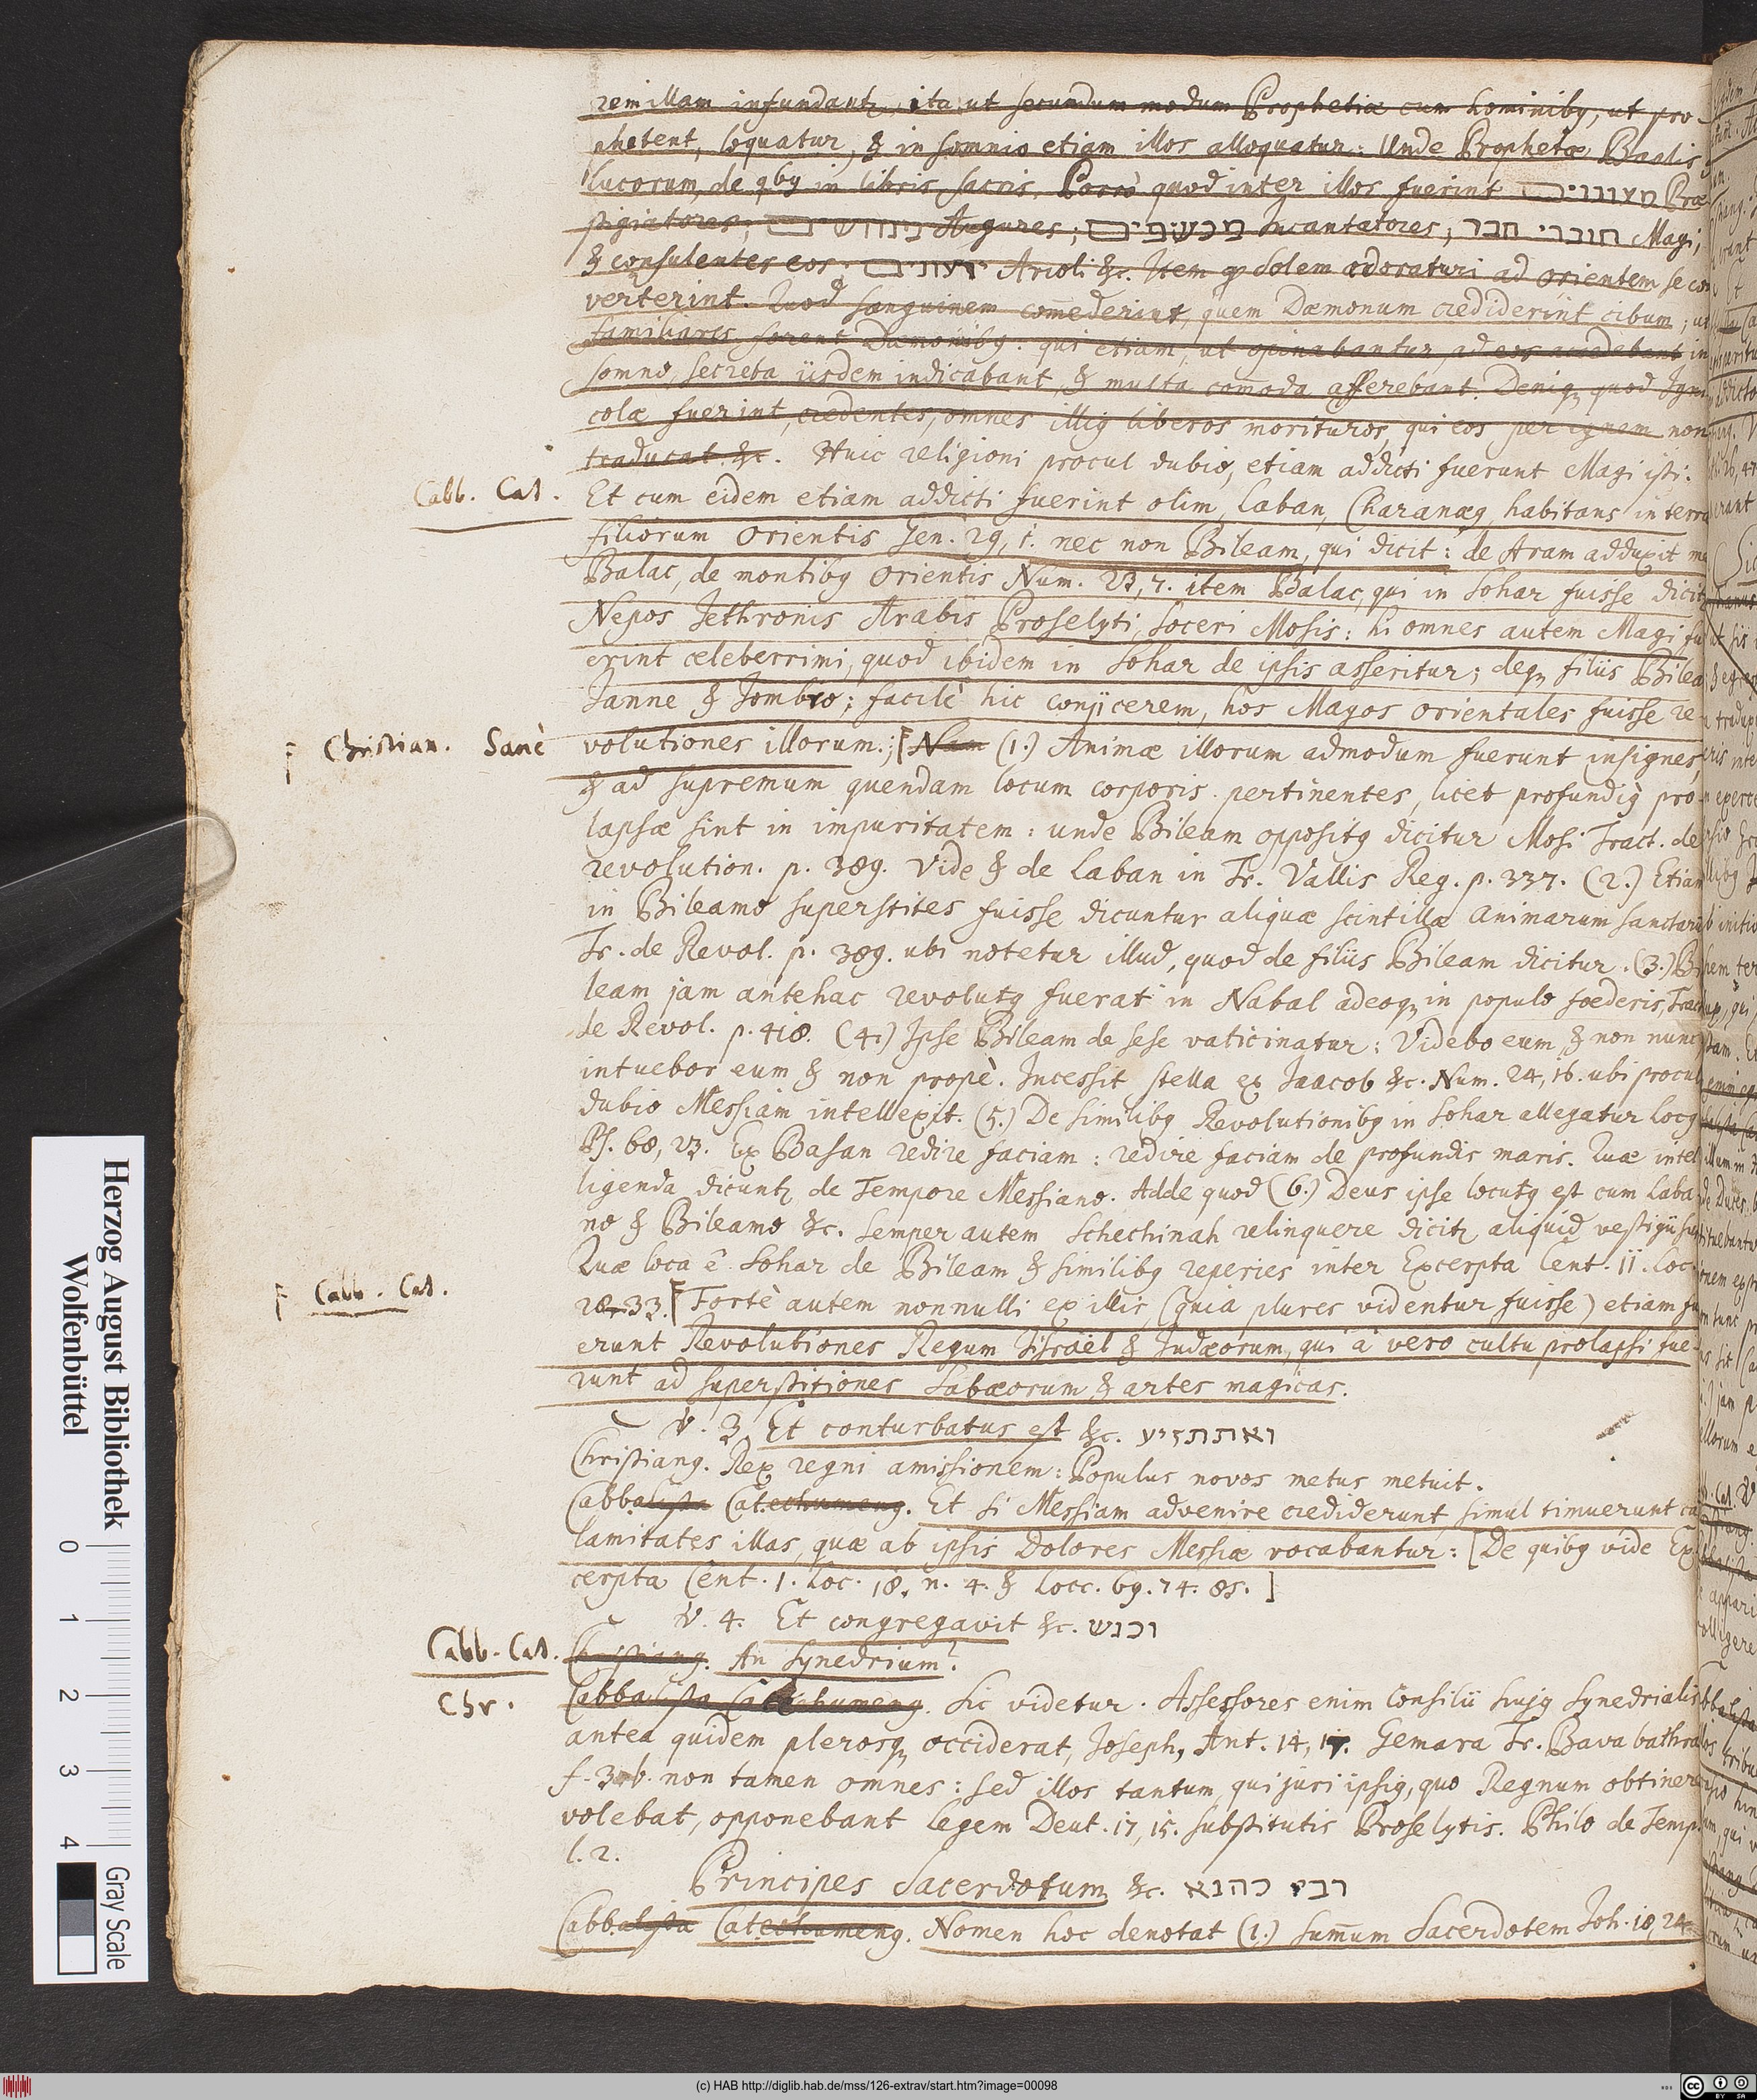 rem illam infundantr, ita ut secundum modum Prophetiæ cum hominibq, ut pro-
phetent, loquatur, & in somnio etiam illos alloquatur: Unde Prophetæ Baalis
lucorum, de qbq in libris sacris. Porrò quod inter illos fuerint מעוננים Præ
stigiatores; מנחשים Augures; מכשפים Incantatores; חוברי חבר Magi;
& consulentes eos; ידעונים Arioli &c. Item q Solem adoraturi ad orientem se con
verterint. Quod sanguinem com̄ederint, quem Dæmonum crediderint cibum; ut
familiares forent Dæmonibq: qui etiam, ut opinabantur, ad eos accedebant in
somno, secreta iisdem indicabant, & multa com̄oda afferebant. Deniq quod Igni
colæ fuerint, credentes, omnes illiq liberos morituros, qui eos per ignem non
traducat. &c. Huic religioni procul dubio, etiam addicti fuerunt Magi isti.
Cabb. Cat. Et cum eidem etiam addicti fuerint olim, Laban, Charanæq, habitans in terra
filiorum Orientis Gen. 29, 1. nec non Bileam, qui dicit: de Aram adduxit me
Balac, de montibq Orientis Num. 23, 7. item Balac, qui in Sohar fuisse dicitr
Nepos Jethronis Arabis Proselyti, Soceri Mosis: hi omnes autem Magi fu
erint celeberrimi, quod ibidem in Sohar de ipsis asseritur; deq filiis Bilea
Janne & Jombro; facilè hic conjicerem, hos Magos orientales fuisse re
F Christian. Sanè volutiones illorum.; [Nam (1.) Animæ illorum admodum fuerunt insignes
& ad supremum quendam locum corporis pertinentes, licet profundiq pro-
lapsæ sint in impuritatem: unde Bileam oppositq dicitur Mosi Tract. de
revolution. p. 389. Vide & de Laban in Tr. Vallis Reg. p. 337. (2.) Etiam
in Bileamo superstites fuisse dicuntur aliquæ scintillæ Animarum sanctaru
Tr. de Revol. p. 389. ubi notetur illud, quod de filiis Bileam dicitur. (3.) Bi
leam jam antehac revolutq fuerat in Nabal adeoq in populo foederis, Trac
de Revol. p. 418. (4.) Ipse Bileam de sese vaticinatur: Videbo eum, & non nunc
intuebor eum & non propè. Incessit stella ex Jaacob &c. Num. 24, 16. ubi procul
dubio Messiam intellexit. (5.) De similibq Revolutionibq in Sohar allegatur locq
Ps. 68, 23. Ex Basan redire faciam: redire faciam de profundis maris. Quæ intel
ligenda dicuntr de Tempore Messiano. Adde quod (6.) Deus ipse locutq est cum Laba
no & Bileamo &c. Semper autem Schechinah relinquere dicitr aliquid vestigii sui
Quæ loca è Sohar de Bileam & similibq reperies inter Excerpta Cent. 11. Loc.
F Cabb. Cat. 28. 33. [Fortè autem nonnulli ex illis, (quia plures videntur fuisse) etiam fu
erunt Revolutiones Regum Jisraël & Judæorum, qui à vero cultu prolapsi fue-
runt ad superstitiones Sabæorum & artes magicas.
V. 3. Et conturbatus est &c. ואתתזיע
Christianq. Rex regni amissionem: Populus novos metus metuit.
Cabbalista Catechumenq. Et si Messiam advenire crediderunt simul timuerunt ca
lamitates illas, quæ ab ipsis Dolores Messiæ vocabantur: [De quibq vide Ex
cerpta Cent. 1. Loc. 18. n. 4. & Locc. 69. 74. 85. ]
V. 4. Et congregavit &c. וכנש
Cabb. Cat. Christianq. An Synedrium?
Chr. Cabbalista Catechumenq. Sic videtur. Assessores enim Consilii hujq Synedrialis
antea quidem plerosq occiderat, Joseph, Ant. 14, 17. Gemara Tr. Bava bathra
f. 3. b. non tamen omnes: sed illos tantum, qui juri ipsiq, quo Regnum obtinere
volebat, opponebant legem Deut. 17, 15. substitutis Proselytis. Philo de Temp.
l. 2.
Principes Sacerdotum &c. רבי כהנא
Cabbalista Catechumenq. Nomen hoc denotat (1.) sum̄um Sacerdotem Joh. 18, 24
Herzog August Bibliothek
Wolfenbüttel
0 1 2 3 4
Gray Scale
(c) HAB http://diglib.hab.de/mss/126-extrav/start.htm?image=00098